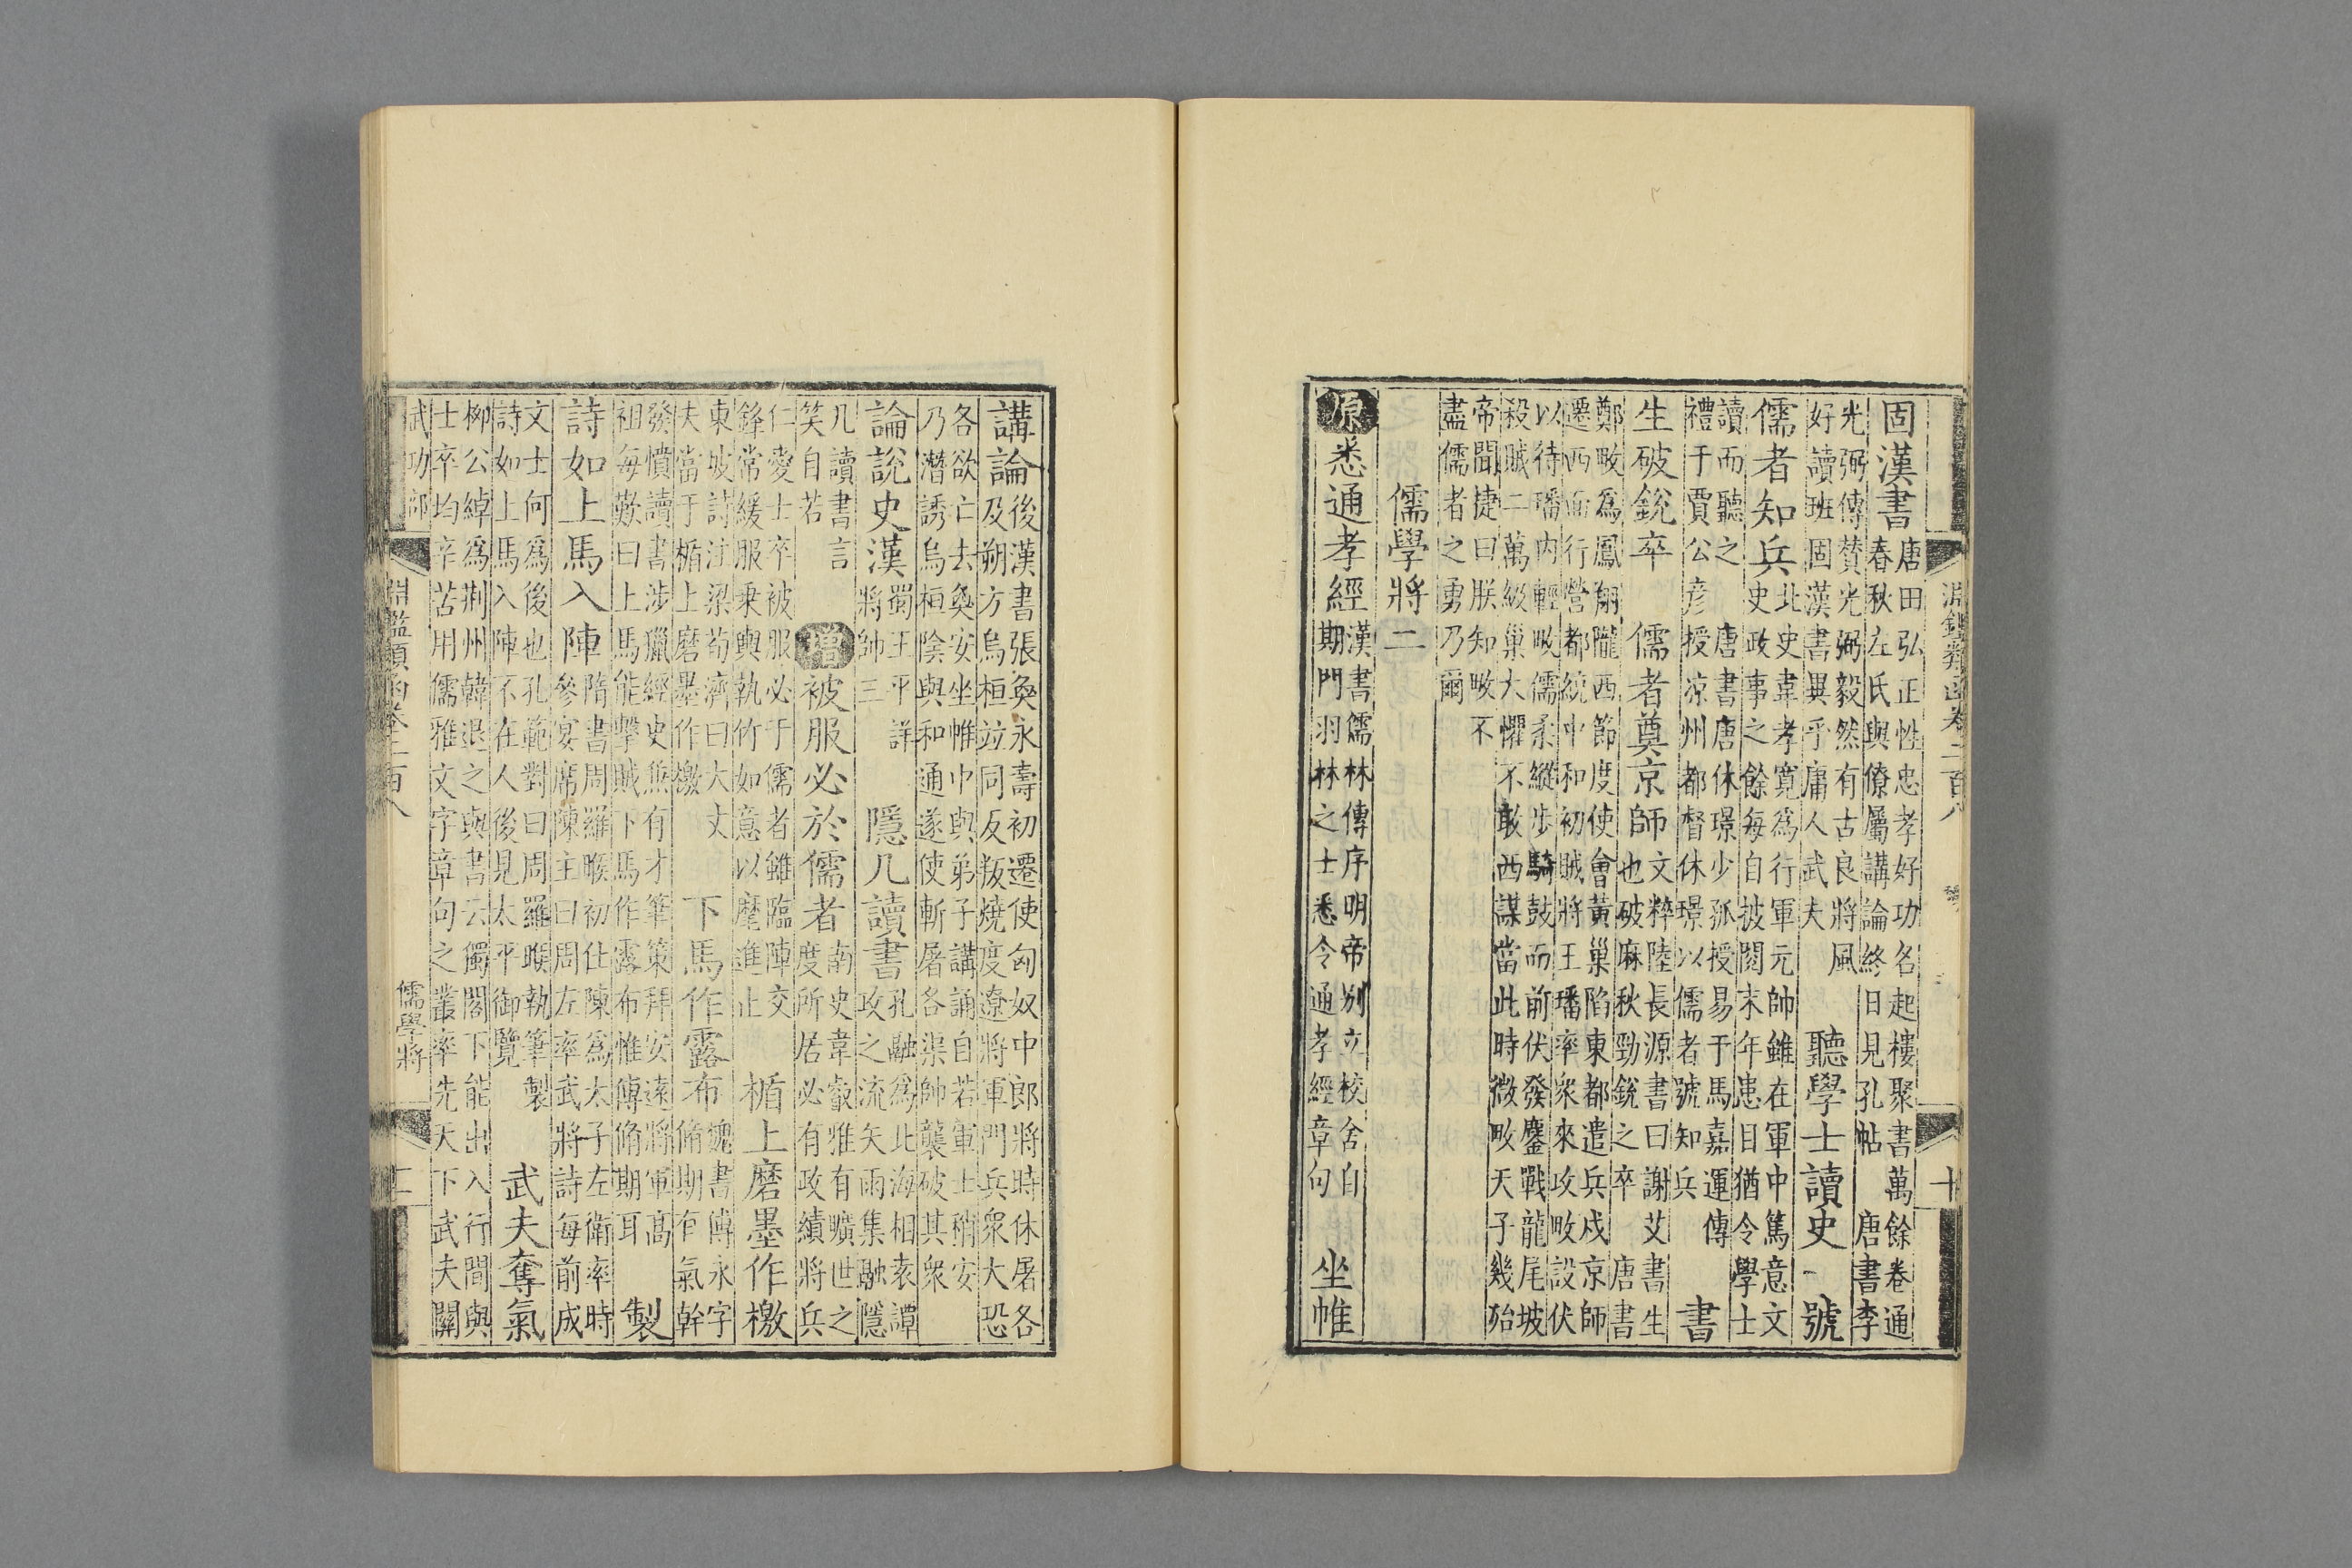 淵鑑類函卷二百八
十
固漢書唐田弘正性忠孝好功名起樓聚書萬餘卷通
春秋左氏與僚屬講論終日見孔帖 唐書李
光弼傳贊光弼毅然有古良將風
好讀班固漢書異乎庸人武夫 聽學士讀史 號
儒者知兵北史韋孝寬爲行軍元帥雖在軍中篤意文
史政事之餘每自披閱末年患目猶令學士
讀而聽之 唐書唐休璟少孤授易于馬嘉運傳
禮于賈公彦授凉州都督休璟以儒者號知兵 書
生破銳卒 儒者奠京師文粹陸長源書曰謝艾書生
也破麻秋勁銳之卒 唐書
鄭畋爲鳳翔隴西節度使會黃巢陷東都遣兵戍京師
遷西面行營都統中和初賊將王璠率衆來攻畋設伏
以待璠内輕畋儒柔縱步騎鼓而前伏發鏖戰龍尾坡
殺賊二萬級巢大懼不敢西謀當此時微畋天子幾殆
帝聞捷曰朕知畋不
盡儒者之勇乃爾
儒學將二
原悉通孝經漢書儒林傳序明帝別立校舍自
期門羽林之士悉令通孝經章句 坐帷
講論後漢書張奐永壽初遷使匈奴中郎將時休屠各
及朔方烏桓竝同反叛燒度遼將軍門兵衆大恐
各欲亡去奐安坐帷中與弟子講誦自若軍士稍安
乃潛誘烏桓陰與和通遂使斬屠各渠帥襲破其衆
論說史漢蜀王平詳
將帥三 隱几讀書孔融爲北海相袁譚
攻之流矢雨集融隱
几讀書言
笑自若 增被服必於儒者南史韋叡雅有曠世之
度所居必有政績將兵
仁愛士卒被服必于儒者雖臨陣交
鋒常緩服乘輿執竹如意以麾進止 楯上磨墨作檄
東坡詩注梁荀濟曰大丈
夫當于楯上磨墨作檄 下馬作露布魏書傅永字
脩期有氣幹
發憤讀書涉獵經史兼有才筆策拜安遠將軍高
祖每歎曰上馬能擊賊下馬作露布惟傅脩期耳 製
詩如上馬入陣隋書周羅睺初仕陳爲太子左衛率時
參宴席陳主曰周左率武將詩每前成
文士何爲後也孔範對曰周羅睺執筆製
詩如上馬入陣不在人後見太平御覽 武夫奪氣
柳公綽爲荆州韓退之與書云獨閣下能出入行間與
士卒均辛苦用儒雅文字章句之業率先天下武夫關
武功部
淵鑑類函卷二百八
儒學將